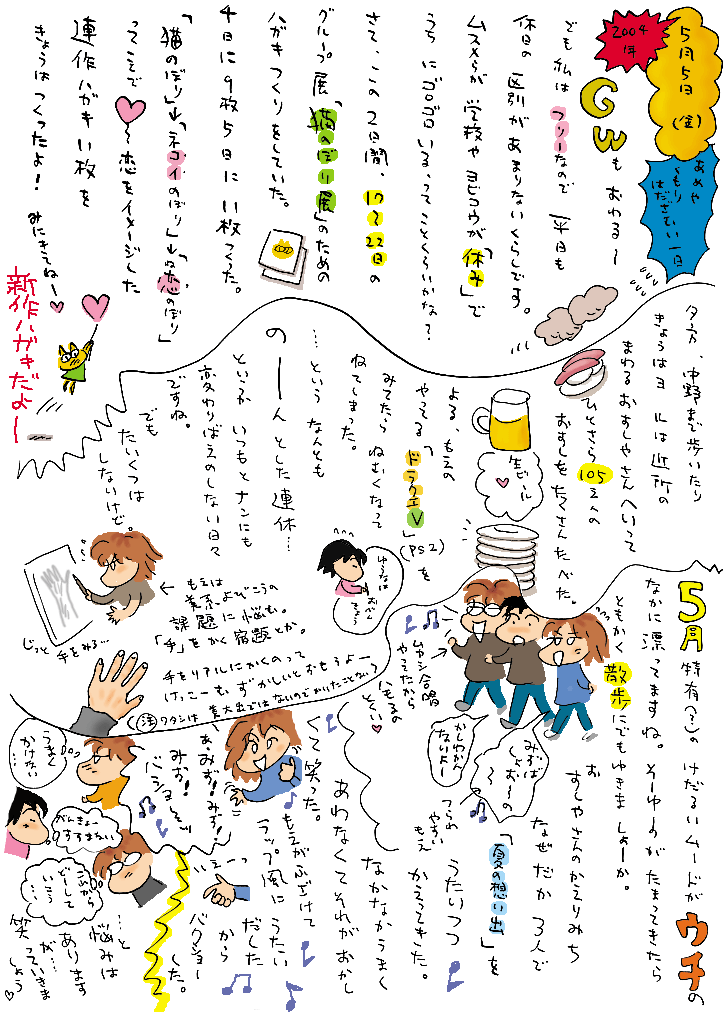 5月5日(金)
2004年
あめや
くもり
はださむい一日
GWも おわる〜
でも 私は フリーなので 平日も
休日の 区別が あまりないくらしです。
ムスメらが 学校や ヨビコウが「休み」で
うちに ゴロゴロ いる、ってことくらいかな?
さて、この2日間、17〜22日の
グループ展「猫のぼり展」のための
ハガキつくりをしていた。
4日に9枚5日に11枚つくった。
「猫のぼり」↓「ネコイのぼり」↓「ね恋のぼり」
ってことで 〜恋をイメージした
連作ハガキ11枚を
きょうはつくったよ! みにきてねー
新作ハガキだよー
夕方、中野まで歩いたり
きょうはヨルは近所の
まわるおすしやさんへいって
ひとさら105えんの
おすしをたくさんたべた。
生ビール
よる、もえの
やってる「ドラクエV」(PS2)を
みてたら ねむくなって
ねてしまった。
…という なんとも
のーんとした連休…
というか いつもとナンにも
変わりばえのしない日々
ですね。
でも
たいくつは
しないけど。
ゆうなは
おべん
きょう
←もえは
美系よびこうの
課題に悩む。
「手」をかく宿題とか。
じっと手をみる…
手をリアルにかくのって
けっこーむずかしいとおもうよー
(注)ワタシは美大出ではないのでかいたことない)
5月特有(?)の けだるいムードが ウチの
なかに漂ってますね。そーゆーのが たまってきたら
ともかく 散歩にでもゆきましょーか。
おすしやさんのかえりみち
なぜだか 3人で
「夏の想い出」を
うたいつつ
かえってきた。
ムカシ合唱
やってたから
ハモるの
とくい
みずば
しょお〜の
〜
かしわかん
ないよー
つられ
やすい
もえ
なかなかうまく
あわなくてそれがおかし
くて笑った。
もえがふざけて
ラップ風に うたい
だした
から
バクショー
した。
あ、みず!みず!
みず!
バショーッ
いぇーっ
うまく
かけない…
べんきょー
すすまない
これから
どーして
いこう
…
…と
悩みは
あります
が…
笑っていきま
しょう